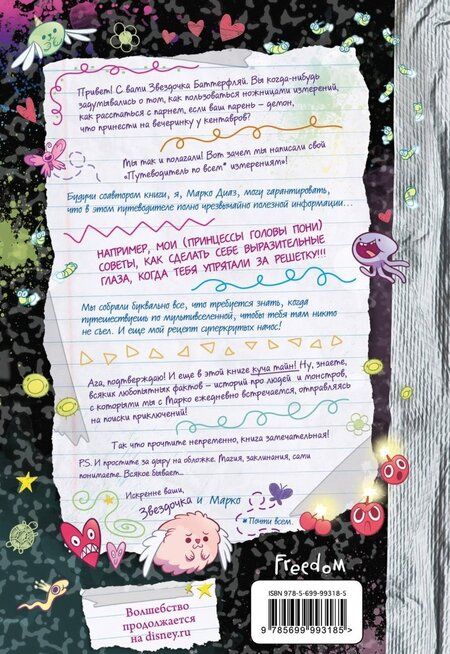 Привет! С вами Звездочка Баттерфляй. Вы когда-нибудь
задумывались о том, как пользоваться ножницами измерений,
как расстаться с парнем, если ваш парень – демон,
что принести на вечеринку у кентавров?
Мы так и полагали! Вот зачем мы написали свой
«Путеводитель по всем* измерениям»!
Будучи соавтором книги, я, Марко Диаз, могу гарантировать,
что в этом путеводителе полно чрезвычайно полезной информации...
НАПРИМЕР, МОИ (ПРИНЦЕССЫ ГОЛОВЫ ПОНИ)
СОВЕТЫ, КАК СДЕЛАТЬ СЕБЕ ВЫРАЗИТЕЛЬНЫЕ
ГЛАЗА, КОГДА ТЕБЯ УПРЯТАЛИ ЗА РЕШЕТКУ!!!
Мы собрали буквально все, что требуется знать, когда
путешествуешь по мультивселенной, чтобы тебя там никто
не съел. И еще мой рецепт суперкрутых начос!
Ага, подтверждаю! И еще в этой книге куча тайн! Ну, знаете,
всяких любопытных фактов – историй про людей и монстров,
с которыми мы с Марко ежедневно встречаемся, отправляясь
на поиски приключений!
Так что прочтите непременно, книга замечательная!
P.S. И простите за дыру на обложке. Магия, заклинания, сами
понимаете. Всякое бывает...
Искренне ваши,
Звездочка и Марко
*Почти всем.
Freedom
ISBN 978-5-699-99318-5
9 785699 993185 >
Волшебство
продолжается
на disney.ru